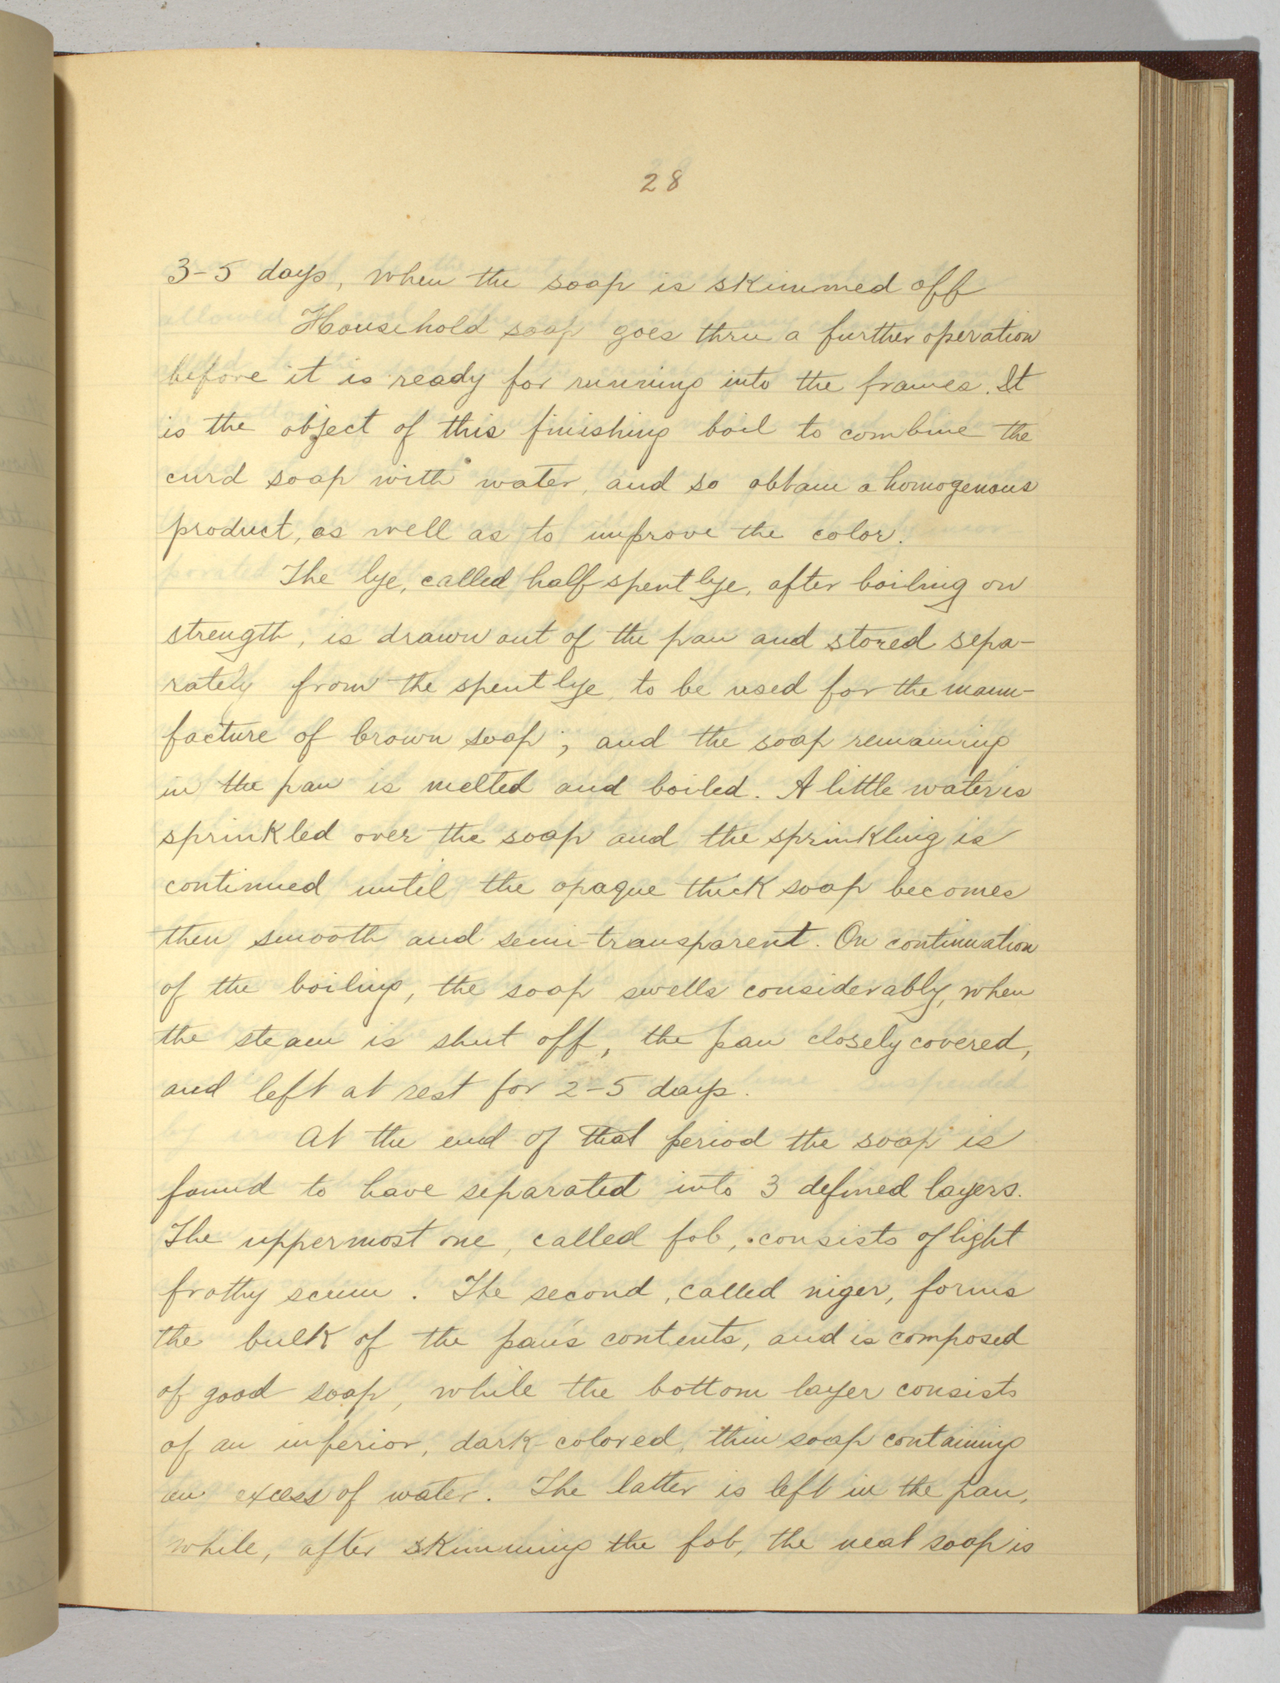 28
3-5 days, when the soap is skimmed off
Household soap goes thru a further operation
before it is ready for running into the frames. It
is the object of this finishing boil to combine the
curd soap with water, and so obtain a homogenous
product, as well as to improve the color.
The lye, called half spent lye, after boiling on
strength, is drawn out of the pan and stored sepa-
rately from the spent lye, to be used for the manu-
facture of brown soap; and the soap remaining
in the pan is melted and boiled. A little water is
sprinkled over the soap and the sprinkling is
continued until the opaque thick soap becomes
then smooth and semi-transparent. On continuation
of the boiling, the soap swells considerably, when
the steam is shut off, the pan closely covered,
and left at rest for 2-5 days.
At the end of that period the soap is
found to have separated into 3 defined layers.
The uppermost one, called fob, consists of light
frothy scum. The second, called niger, forms
the bulk of the pan's contents, and is composed
of good soap, while the bottom layer consists
of an inferior, dark-colored, thin soap containing
an excess of water. The latter is left in the pan,
while, after skimming the fob, the neat soap is